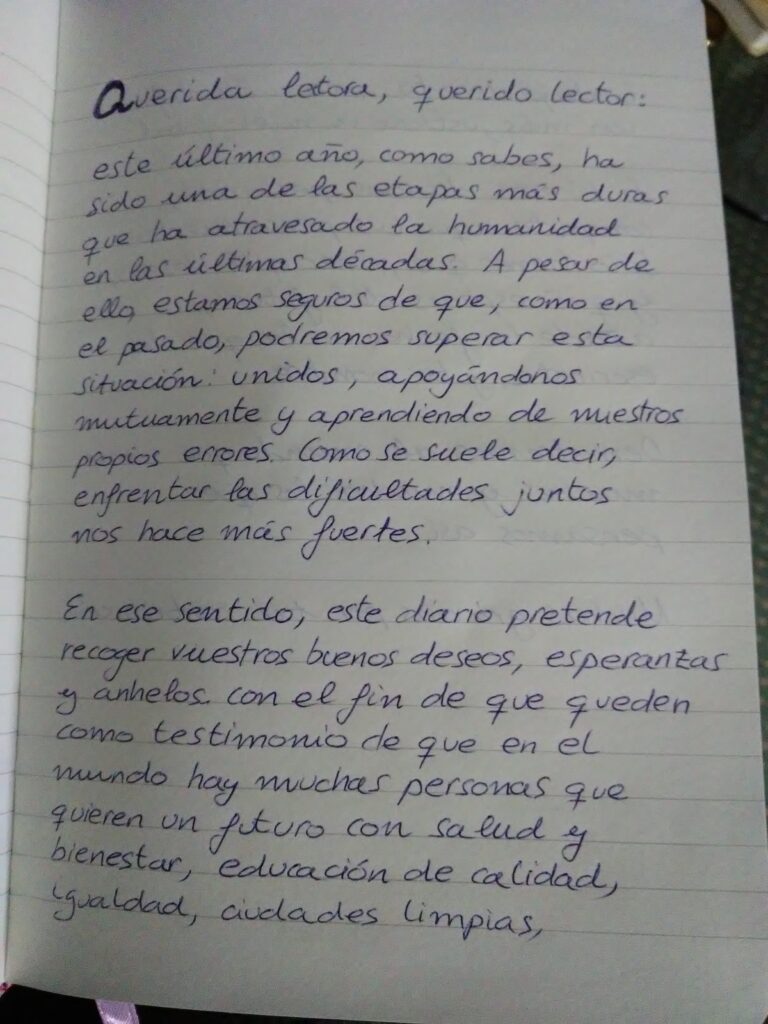 Querida lectora, querido lector:
este último año, como sabes, ha
sido una de las etapas más duras
que ha atravesado la humanidad
en las últimas décadas. A pesar de
ello, estamos seguros de que, como en
el pasado, podremos superar esta
situación: unidos, apoyándonos
mutuamente y aprendiendo de nuestros
propios errores. Como se suele decir,
enfrentar las dificultades juntos
nos hace más fuertes.
En ese sentido, este diario pretende
recoger vuestros buenos deseos, esperanzas
y anhelos. con el fin de que queden
como testimonio de que en el
mundo hay muchas personas que
quieren un futuro con salud y
bienestar, educación de calidad,
igualdad, ciudades limpias,